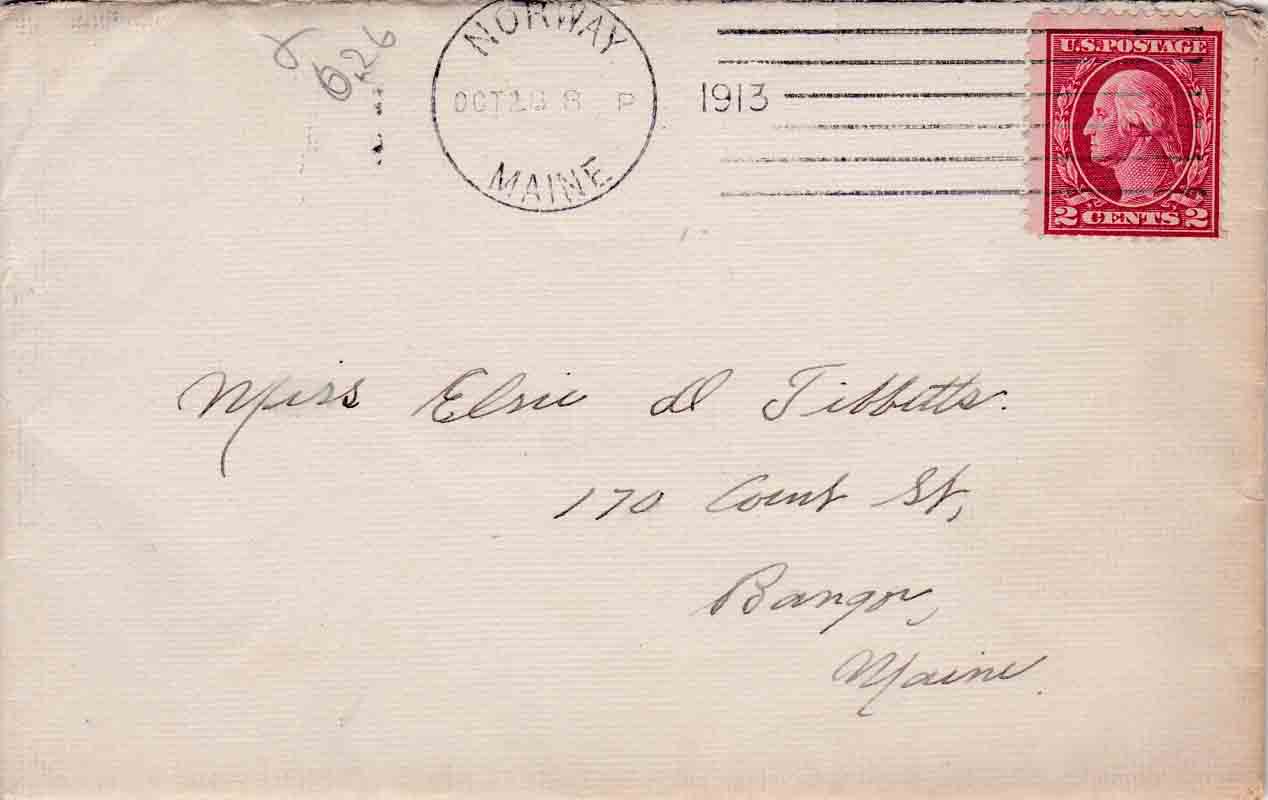 626
NORWAY
OCT 8 P
1913
MAINE
U.S. POSTAGE
2 CENTS 2
Miss Elsie D Tibbetts.
170 Court St,
Bangor,
Maine.